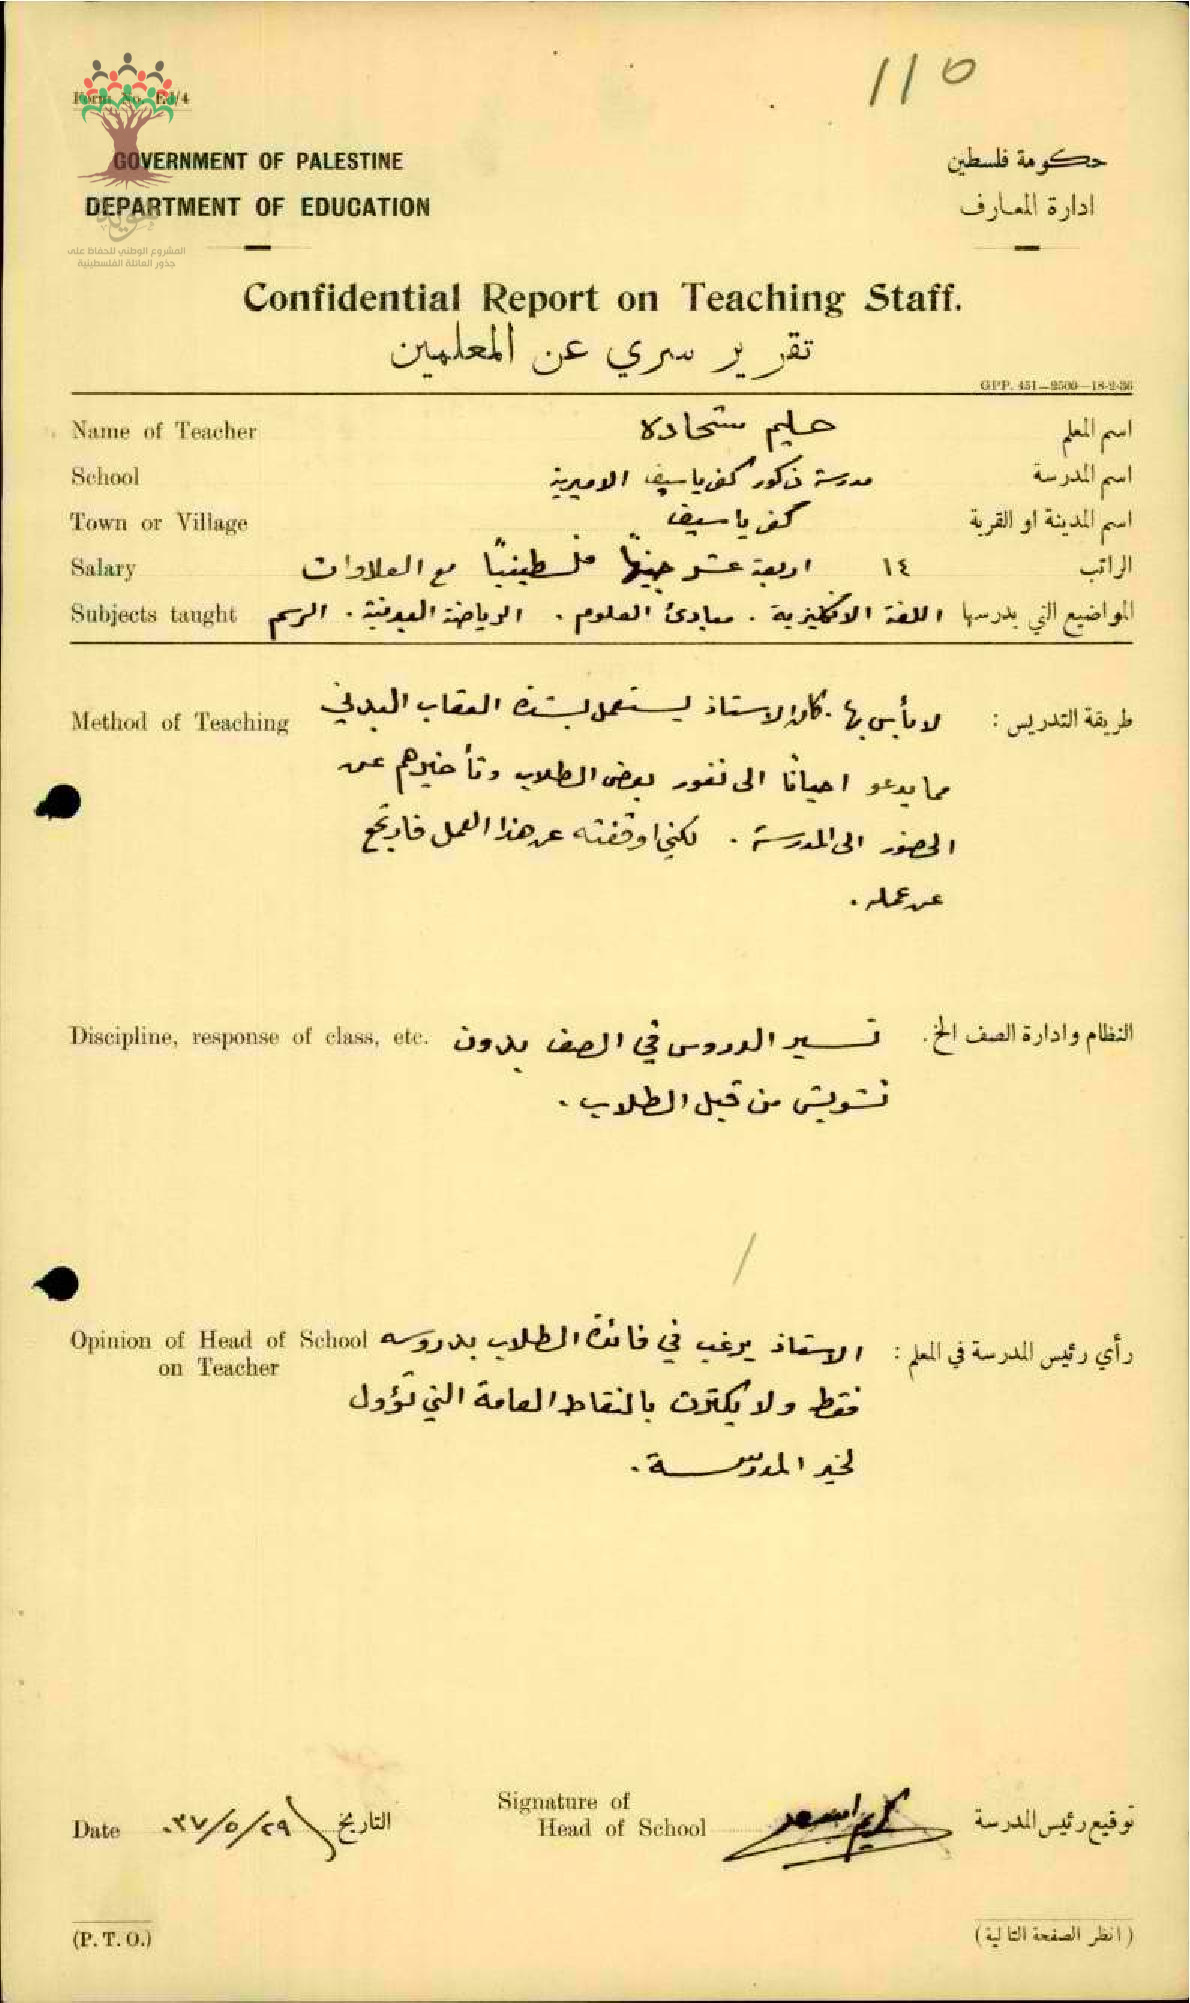 110
Form No. E.1/4
GOVERNMENT OF PALESTINE
حكومة فلسطين
DEPARTMENT OF EDUCATION
ادارة المعارف
المشروع الوطني للحفاظ على
جذور العائلة الفلسطينية
Confidential Report on Teaching Staff.
تقرير سري عن المعلمين
GPP. 451—2500—18-2-36
Name of Teacher حليم شحاده اسم المعلم
School مدرسة ذكور كفر ياسيف الاميرية اسم المدرسة
Town or Village كفر ياسيف اسم المدينة او القرية
Salary ١٤ اربعة عشر جنيهاً فلسطينياً مع العلاوات الراتب
Subjects taught المواضيع التي يدرسها اللغة الانكليزية . مبادئ العلوم . الرياضة البدنية . الرسم
Method of Teaching طريقة التدريس : لا بأس بها . كان الاستاذ يستعمل بشدة العقاب البدني
مما يدعو احياناً الى نفور بعض الطلاب وتأخيرهم عن
الحضور الى المدرسة . لكني اوقفته عن هذا العمل فارتجع
عن عمله .
Discipline, response of class, etc. النظام وادارة الصف الخ . تسير الدروس في الصف بدون
تشويش من قبل الطلاب .
Opinion of Head of School رأي رئيس المدرسة في المعلم : الاستاذ يرغب في فائدة الطلاب بدروسه
on Teacher
فقط ولا يكترث بالنقاط العامة التي تؤول
لخير المدرسة .
Signature of
Date ٣٧/٥/٢٩ التاريخ Head of School توقيع رئيس المدرسة
(P. T. O.)
(انظر الصفحة التالية)